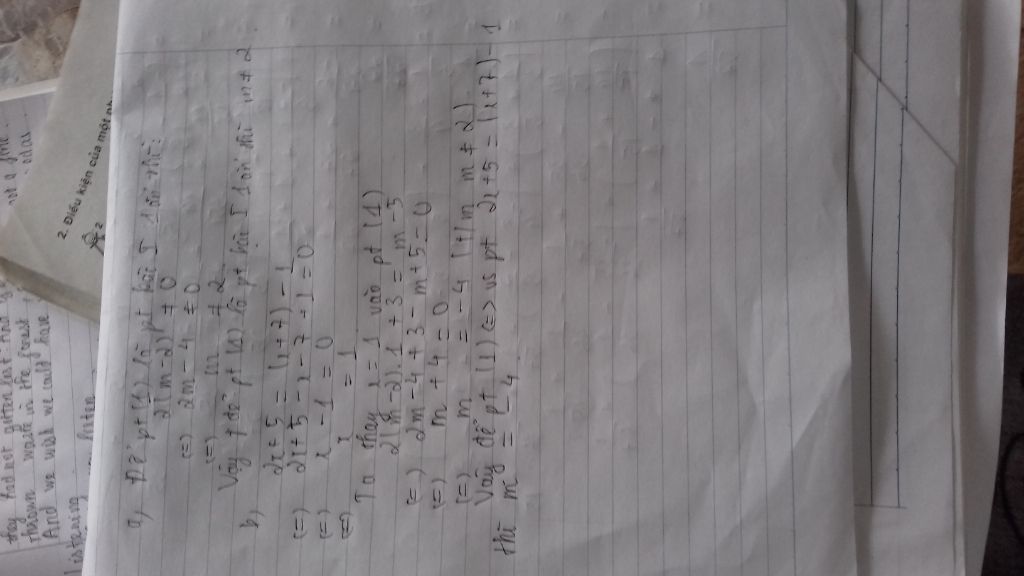 a, Để pt (1) là pt bậc I 1 ẩn thì:
2(m-2) ≠ 0
(=) 2m - 4 ≠ 0
(=) m ≠ 2
Vậy để pt (1) là pt bậc I 1 ẩn thì m ≠ 2.
b, 2x + 5 = (x+7) - 1
(=) 2x + 5 - x - 7 + 1 = 0
(=) x - 1 = 0
(=) x = 1
Ta thay x = 1 vào pt (1)
2(m-2).1 + 3 = m - 5
(=) 2m - 4 + 3 - m + 5 = 0
(=) m + 4 = 0
(=) m = -4 (t/m m ≠ 2)
Vậy để pt (1) (=> vs pt 2x + 5 = (x+7) - 1
thì m = -4
2. Điều kiện của một
they had not gotten lost and
thrown waste in the forest
And we wish we could have
Listening